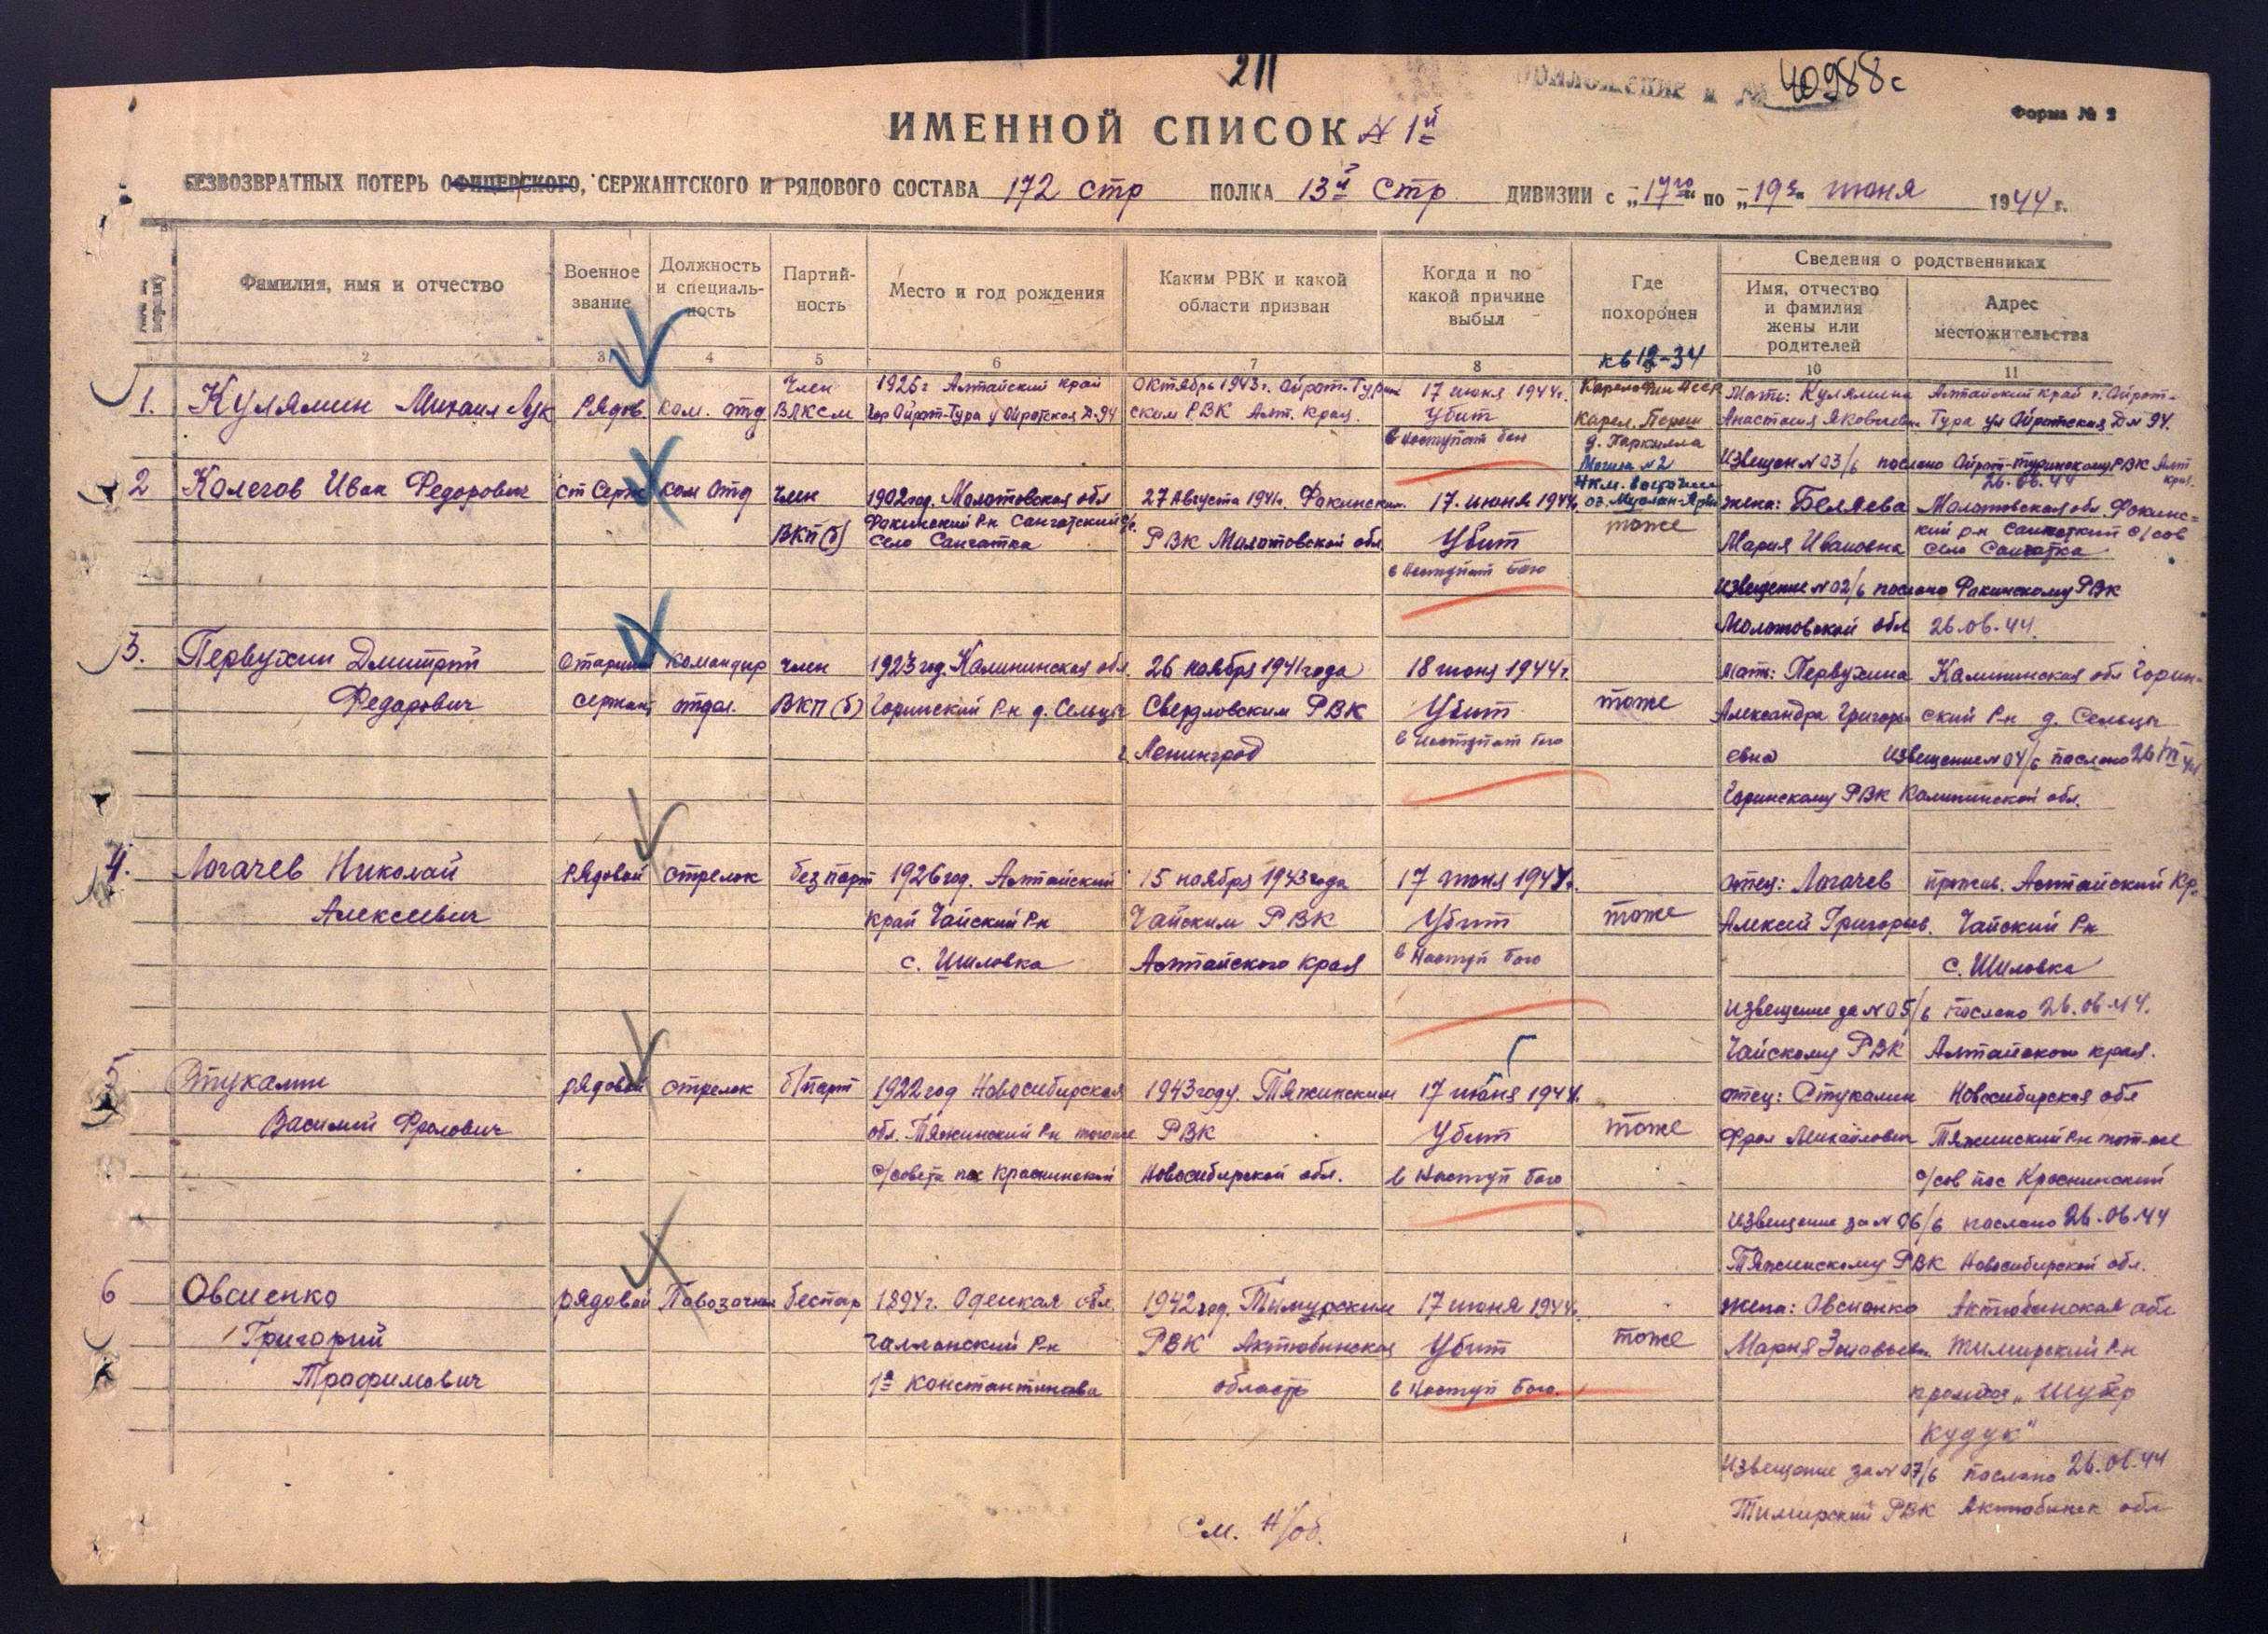 211
Приложение к № 40988с
Форма № 2
ИМЕННОЙ СПИСОК № 1й
БЕЗВОЗВРАТНЫХ ПОТЕРЬ ОФИЦЕРСКОГО, СЕРЖАНТСКОГО И РЯДОВОГО СОСТАВА 172 стр ПОЛКА 13й Стр ДИВИЗИИ с „17го" по „19е" июня 1944 г.
Фамилия, имя и отчество
Военное звание
Должность и специаль-ность
Партий-ность
Место и год рождения
Каким РВК и какой области призван
Когда и по какой причине выбыл
Где похоронен
Сведения о родственниках
Имя, отчество и фамилия жены или родителей
Адрес местожительства
2 3 4 5 6 7 8 10 11
кв 12-34
1. Кулямин Михаил Лук
Рядов
ком. отд
Член
ВЛКСМ
1926г Алтайский край
гор Ойрот-Тура у Ойротская Д-94
Октябрь 1943г. Ойрот-Турин
ским РВК Алт. края.
17 июня 1944г.
Убит
в наступат бою
Карело Фин ССР
Карел. Переш
д. Паркилла
Могила №2
4 км. восточнее
Мать: Кулямина
Анастасия Яковлевна
Алтайский край г. Ойрот-
Тура ул Ойротская Д№ 94.
Извещен №03/6 послано Ойрот-Туринскому РВК Алт
края.
26.06.44
2 Колегов Иван Федорович
ст Серж
ком отд
член
ВКП(б)
1902год. Молотовская обл
Фокинский Р-н Сайгатский с/с.
село Сайгатка
27 Августа 1941г. Фокинским
РВК Молотовской обл
17. июня 1944г
Убит
в наступат бою
тоже
жена: Беляева
Мария Ивановна
Молотовская обл Фокинс=
кий р-н Сайгатский с/сов
село Сайгатка
Извещение №02/6 послано Фокинскому РВК
Молотовской обл 26.06.44.
3. Первухин Дмитрий
Федорович
Старший
сержант
командир
отдел.
член
ВКП(б)
1923 год. Калининская обл.
Горицский Р-н д. Сельцы
26 ноября 1941 года
Свердловским РВК
г Ленинград
18 июня 1944г.
Убит
в наступат бою
тоже
мать: Первухина
Александра Григорь
евна
Калининская обл Гориц-
ский Р-н д. Сельцы
Извещение №04/6 послано 26/VI 44
Горицскому РВК Калининской обл.
4. Логачев Николай
Алексеевич
Рядовой
стрелок
без парт
1926 год. Алтайский
край Чайский Р-н
с. Шиловка
15 ноября 1943 года
Чайским РВК
Алтайского края
17 июня 1944г.
Убит
в Наступ бою
тоже
отец: Логачев
Алексей Григорьев.
прожив. Алтайский Кр.
Чайский Р-н
с. Шиловка
Извещение за №05/6 послано 26.06.44.
Чайскому РВК Алтайского края.
5 Стукалин
Василий Фролович
рядовой
стрелок
б/парт
1922 год Новосибирская
обл. Тяжинский Р-н тогоже
с/совета пос Краснинский
1943 году. Тяжинским
РВК
Новосибирской обл.
17 июня 1944.
Убит
в Наступ бою
тоже
отец: Стукалин
Фрол Михайлович
Новосибирская обл
Тяжинский Р-н тот-же
с/сов пос Краснинский
Извещение за №06/6 послано 26.06.44
Тяжинскому РВК Новосибирской обл.
6 Овсиенко
Григорий
Трофимович
рядовой
Повозочный
беспар
1894г. Одеская обл.
1я Константинова
1942 год. Тымурским
РВК Актюбинская
область
17 июня 1944г.
Убит
в Наступ бою.
тоже
жена: Овсиенко
Мария Зиновьевн
Актюбинская обл
Тимирский Р-н
промтоз „Шубар
Кудук"
Извещение за №07/6 послано 26.06.44
Тимирский РВК Актюбинск обл
См. Н/об.